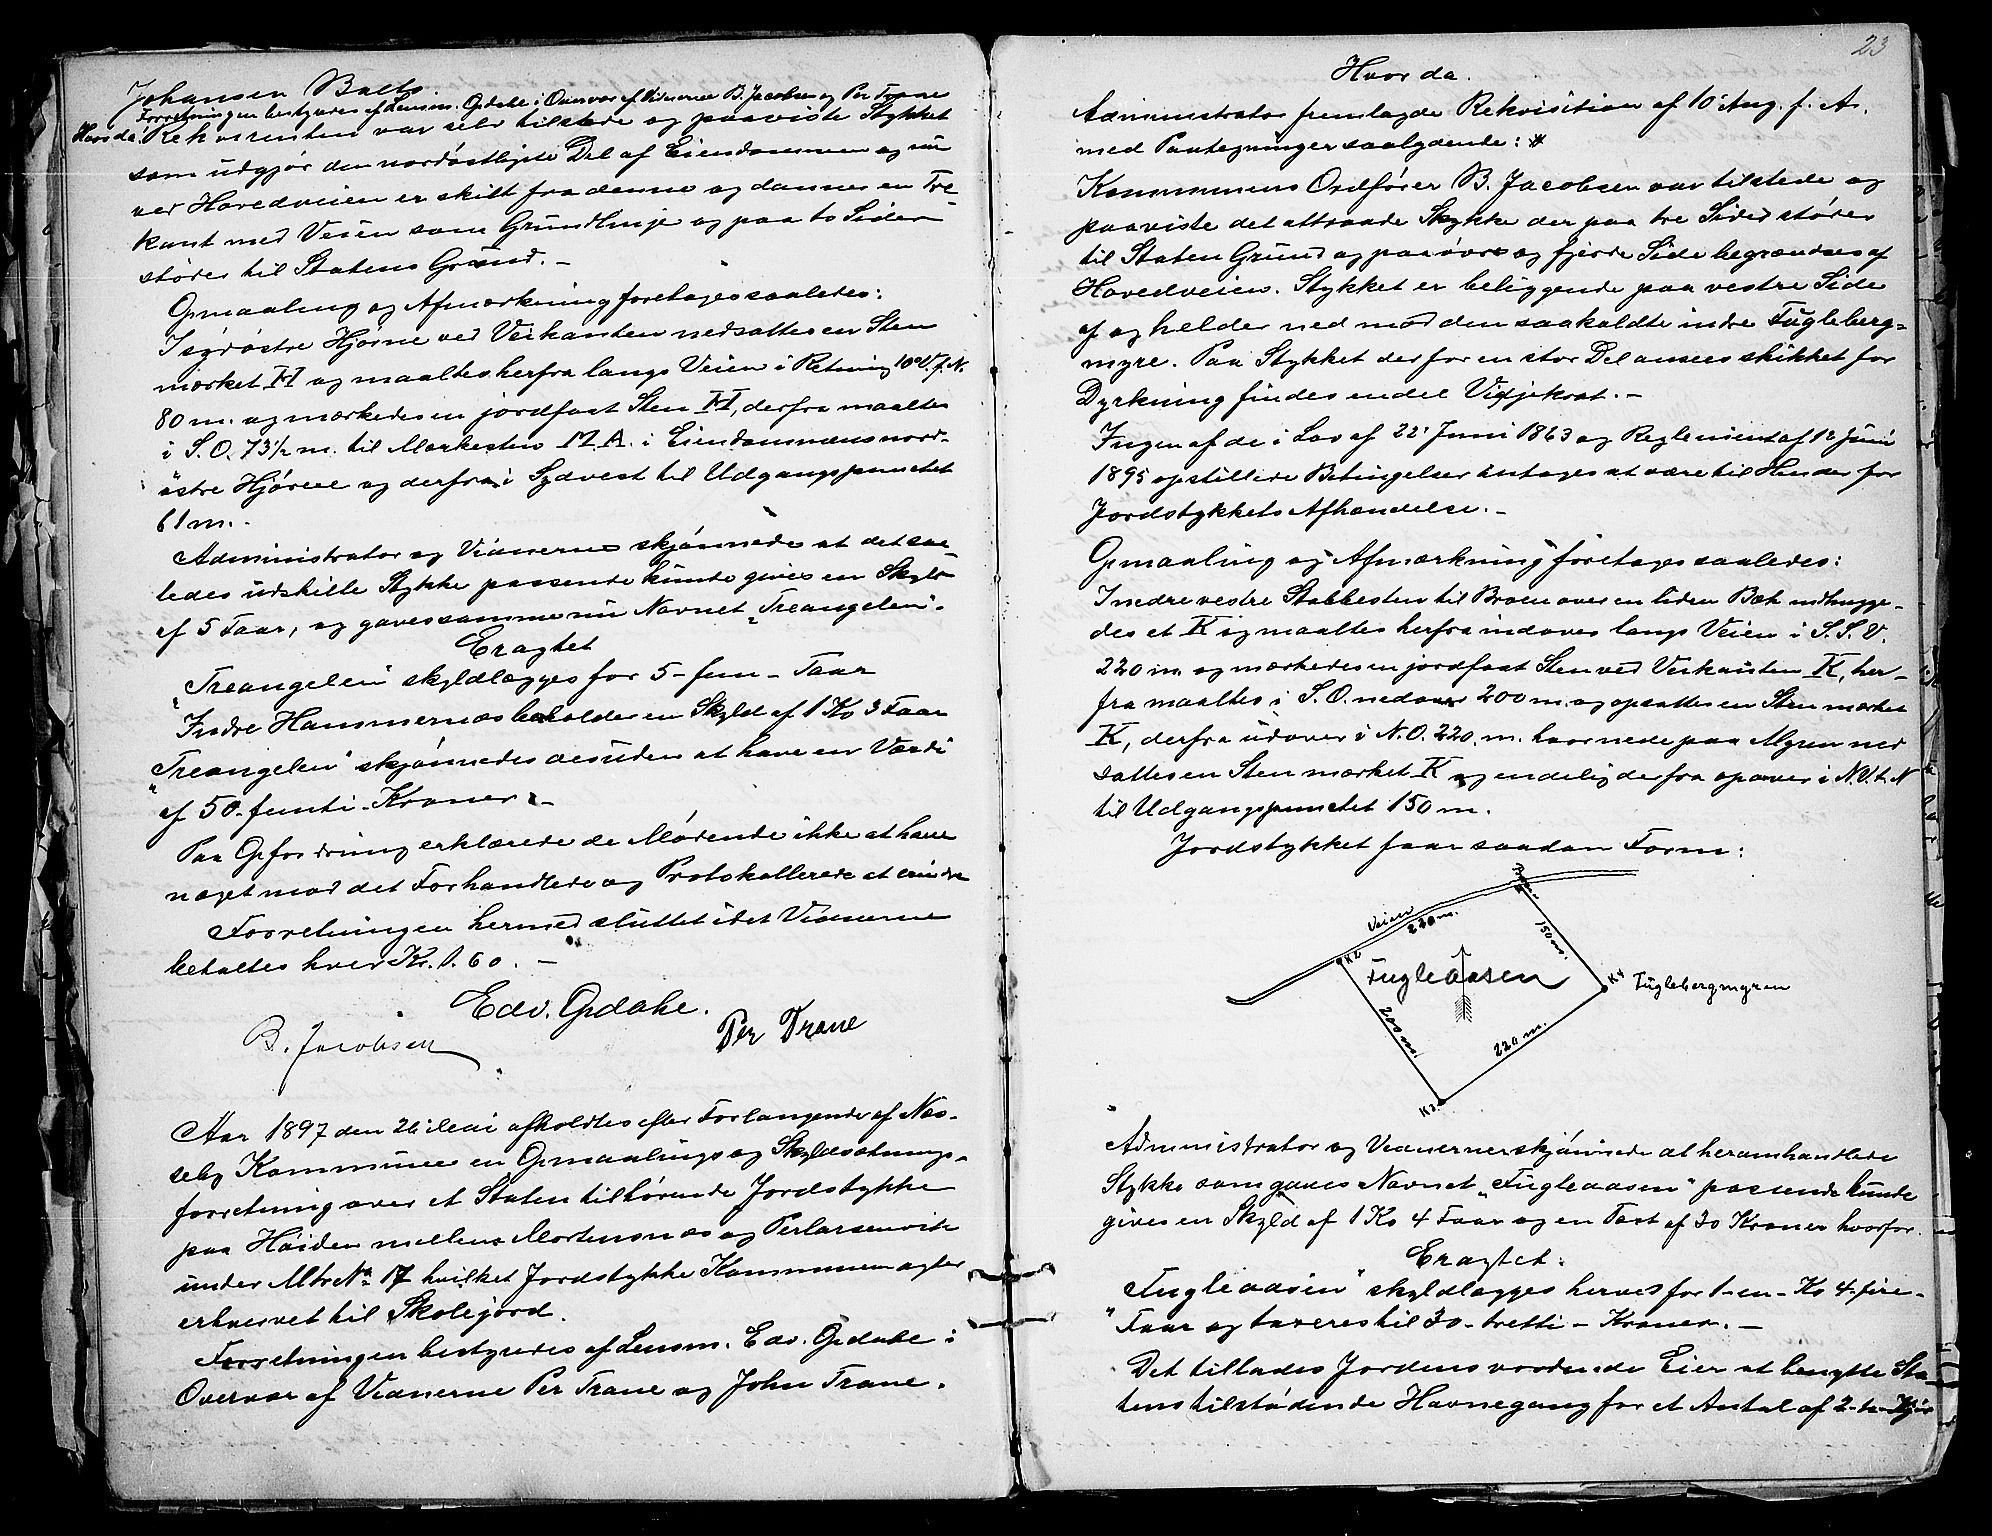 Johansen Balto.
Forretningen bestyredes af Lensm. Opdahl i Overvær af Vidnerne B. Jacobsen og Per Trane
Hvorda: Rekvirenten var selv tilstede og paaviste Stykket
som udgjør den nordøstligste Del af Eiendommen og nu
ved Hovedveien er skilt fra denne og danner en Tre-
kant med Veien som Grundlinje og paa to Sider
støder til Statens Grund. –
Opmaaling og Afmærkning foretoges saaledes:
I sydøstre Hjørne ved Veikanten nedsattes en Sten
mærket H og maaltes herfra langs Veien i Retning 10° V. f. N.
80 m. og mærkedes en jordfast Sten H, derfra maaltes
i S.O. 73½ m. til Markesten M A. i Eiendommens nord-
østre Hjørne og derfra i Sydvest til Udgangspunctet
61 m. .
Administrator og Vidnerne skjønnede at det saa-
ledes udskilte Stykke passende kunde gives en Skyld
af 5 Faar, og gaves samme nu Navnet „Treangelen".
Eragtet
„Treangelen" skyldlægges for 5 - fem - Faar
Indre Hammernæs beholder en Skyld af 1 Ko 3 Faar
„Treangelen" skjønnedes desuden at have en Værdi
af 50 - femti - Kroner. –
Paa Opfordring erklærede de Mødende ikke at have
noget mod det Forhandlede og Protokollerede at erindre
Forretningen hermed sluttet idet Vidnerne
betaltes hver Kr. 1.60. –
Edv. Opdahl.
B. Jacobsen Per Trane
Aar 1897 den 26 Mai afholdtes efter Forlangende af Næs-
seby Kommune en Opmaalings og Skyldsætnings-
forretning over et Staten tilhørende Jordstykke
paa Høiden mellem Mortensnæs og Perlarsenvik
under Mtr No 17 hvilket Jordstykke Kommunen agter
erhvervet til Skolejord.
Forretningen bestyredes af Lensm. Edv. Opdahl i
Overvær af Vidnerne Per Trane og John Trane.
23
Hvor da.
Administrator fremlagde Rekvisition af 10 Aug. f. A.
med Paategninger saalydende: #
Kommunens Ordfører B. Jacobsen var tilstede og
paaviste det attraade Stykke der paa tre Sider støder
til Staten Grund og paa øvre og fjerde Side begrændses af
Hovedveien. Stykket er beliggende paa vestre Side
af og helder ned mod den saakaldte indre Fugleberg-
myre. Paa Stykket der for en stor Del ansees skikket for
Dyrkning findes endel Vidjekrat. –
Ingen af de i Lov af 22 Juni 1863 og Reglement af 1 Juni
1895 opstillede Betingelser antages at være til Hinder for
Jordstykkets Afhændelse. –
Opmaaling og Afmærkning foretoges saaledes:
I nedre vestre Stabbesten til Broen over en liden Bæk indhugge-
des et K og maaltes herfra indover langs Veien i S.S.V.
220 m. og mærkedes en jordfast Sten ved Veikanten K, her-
fra maaltes i S.O. nedover 200 m. og opsattes en Sten mærket
K, derfra udover i N.O. 220. m. hvor nede paa Myren ned
sattes en Sten mærket K og endelig derfra opover i N.V. t. N
til Udgangspunctet 150 m.
Jordstykket faar saadan Form:
Veien
220 m.
150 m.
K2
Fugleaasen
K4 Fuglebergmyren
200 m.
220 m.
K3
Administrator og Vidnerner skjønnede at heromhandlede
Stykke som gaves Navnet „Fugleaasen" passende kunde
gives en Skyld af 1 Ko 4 Faar og en Taxt af 30 Kroner hvorfor.
Eragtet:
„Fugleaasen" skyldlægges herved for 1 - en - Ko 4 - fire -
Faar og taxeres til 30 - tretti - Kroner. –
Det tillades Jordens vordende Eier at benytte Sta-
tens tilstødende Havnegang for et Antal af 2 - to - Kjør